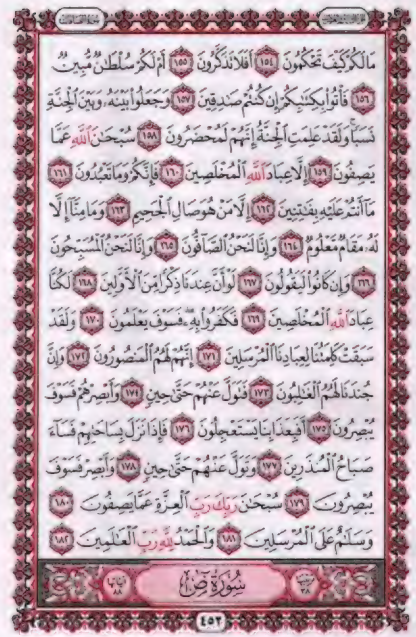 مَالَكُمْ كَيْفَ تَحْكُمُونَ ١٥٤ أَفَلَا تَذَكَّرُونَ ١٥٥ أَمْ لَكُمْ سُلْطَٰنٌ مُّبِينٌ
١٥٦ فَأْتُوا۟ بِكِتَٰبِكُمْ إِن كُنتُمْ صَٰدِقِينَ ١٥٧ وَجَعَلُوا۟ بَيْنَهُۥ وَبَيْنَ ٱلْجِنَّةِ
نَسَبًا وَلَقَدْ عَلِمَتِ ٱلْجِنَّةُ إِنَّهُمْ لَمُحْضَرُونَ ١٥٨ سُبْحَٰنَ ٱللَّهِ عَمَّا
يَصِفُونَ ١٥٩ إِلَّا عِبَادَ ٱللَّهِ ٱلْمُخْلَصِينَ ١٦٠ فَإِنَّكُمْ وَمَا تَعْبُدُونَ ١٦١
مَآ أَنتُمْ عَلَيْهِ بِفَٰتِنِينَ ١٦٢ إِلَّا مَنْ هُوَ صَالِ ٱلْجَحِيمِ ١٦٣ وَمَا مِنَّآ إِلَّا
لَهُۥ مَقَامٌ مَّعْلُومٌ ١٦٤ وَإِنَّا لَنَحْنُ ٱلصَّآفُّونَ ١٦٥ وَإِنَّا لَنَحْنُ ٱلْمُسَبِّحُونَ
١٦٦ وَإِن كَانُوا۟ لَيَقُولُونَ ١٦٧ لَوْ أَنَّ عِندَنَا ذِكْرًا مِّنَ ٱلْأَوَّلِينَ ١٦٨ لَكُنَّا
عِبَادَ ٱللَّهِ ٱلْمُخْلَصِينَ ١٦٩ فَكَفَرُوا۟ بِهِۦ فَسَوْفَ يَعْلَمُونَ ١٧٠ وَلَقَدْ
سَبَقَتْ كَلِمَتُنَا لِعِبَادِنَا ٱلْمُرْسَلِينَ ١٧١ إِنَّهُمْ لَهُمُ ٱلْمَنصُورُونَ ١٧٢ وَإِنَّ
جُندَنَا لَهُمُ ٱلْغَٰلِبُونَ ١٧٣ فَتَوَلَّ عَنْهُمْ حَتَّىٰ حِينٍ ١٧٤ وَأَبْصِرْهُمْ فَسَوْفَ
يُبْصِرُونَ ١٧٥ أَفَبِعَذَابِنَا يَسْتَعْجِلُونَ ١٧٦ فَإِذَا نَزَلَ بِسَاحَتِهِمْ فَسَآءَ
صَبَاحُ ٱلْمُنذَرِينَ ١٧٧ وَتَوَلَّ عَنْهُمْ حَتَّىٰ حِينٍ ١٧٨ وَأَبْصِرْ فَسَوْفَ
يُبْصِرُونَ ١٧٩ سُبْحَٰنَ رَبِّكَ رَبِّ ٱلْعِزَّةِ عَمَّا يَصِفُونَ ١٨٠
وَسَلَٰمٌ عَلَى ٱلْمُرْسَلِينَ ١٨١ وَٱلْحَمْدُ لِلَّهِ رَبِّ ٱلْعَٰلَمِينَ ١٨٢
ترتيبها ٣٨ سُورَةُ صٓ آياتها ٨٨
٤٥٢